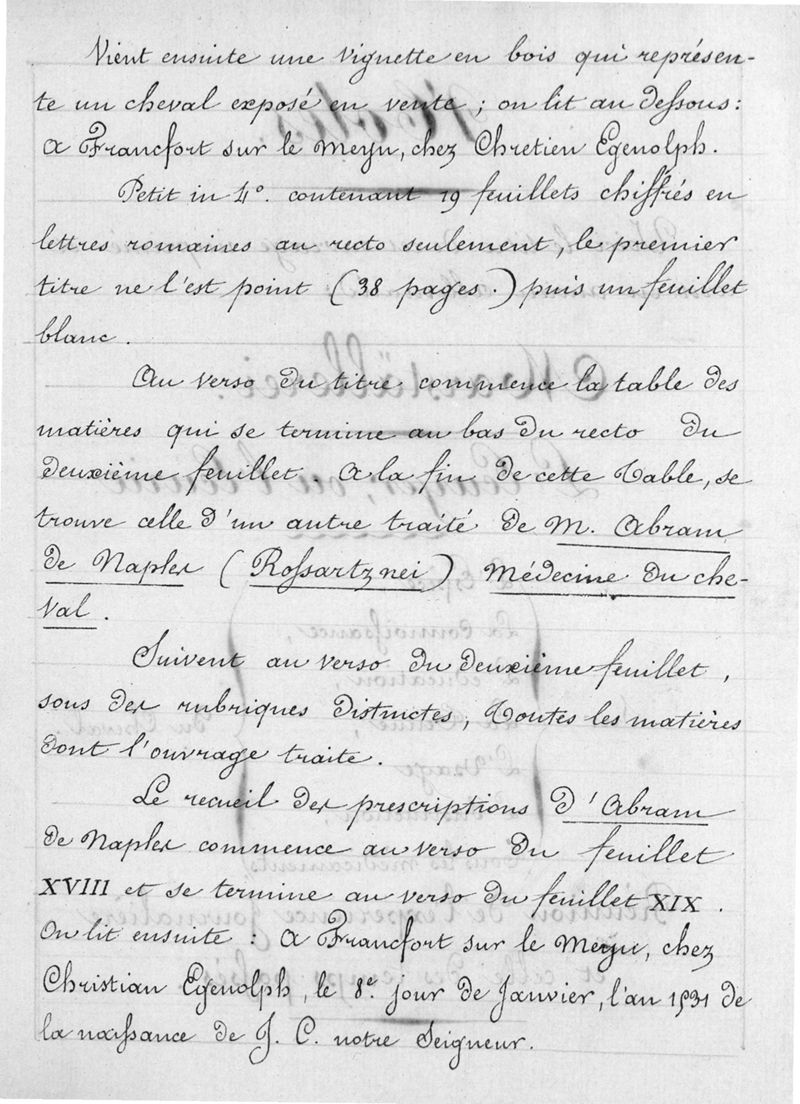 Vient ensuite une vignette en bois qui représen-
te un cheval exposé en vente ; on lit au dessous :
a Francfort sur le Meyn, chez Chretien Egenolph.
Petit in 4°. contenant 19 feuillets chiffrés en
lettres romaines au recto seulement, le premier
titre ne l'est point (38 pages.) puis un feuillet
blanc.
Au verso du titre commence la table des
matières qui se termine au bas du recto du
deuxième feuillet. A la fin de cette Table, se
trouve celle d'un autre traité de M. Abram
de Naples (Rossartznei) Médecine du che-
val.
Suivent au verso du deuxième feuillet,
sous des rubriques distinctes, Toutes les matières
dont l'ouvrage traite.
Le recueil des prescriptions d'Abram
de Naples commence au verso du feuillet
XVIII et se termine au verso du feuillet XIX.
On lit ensuite : a Francfort sur le Meyn, chez
Christian Egenolph, le 8e. jour de Janvier, l'an 1531 de
la naissance de J. C. notre Seigneur.